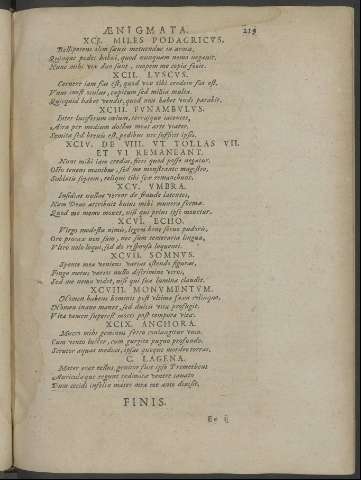 ÆNIGMATA. 219
XCI. MILES PODAGRICVS.
Belliporens olim sæuis metuendus in armis,
Quinque pedes habui, quod nunquam nemo negauit,
Nunc mihi vix duo sunt, inopem me copia fecit.
XCII. LVSCVS.
Cernere iam fas est, quod vix tibi credere fas est,
Vnus inest oculus, capitum sed millia multa.
Quicquid habet vendit, quod non habet vnde parabit.
XCIII. FVNAMBVLVS.
Inter luciferum cœlum, terrasque iacentes,
Aëra per medium doctus meat arte viator,
Semita sed breuis est, pedibus nec sufficit ipsis.
XCIV. DE VIII. VT TOLLAS VII.
ET VI REMANEANT.
Nunc mihi iam credas, fieri quod posse negatur,
Octo tenens manibus, sed me monstrante magistro,
Sublatis septem, reliqui tibi sex remanebunt.
XCV. VMBRA.
Insidias nullas vereor de fraude latentes,
Nam Deus attribuit huius mihi munera formæ
Quod me nemo mouet, nisi qui prius ipse mouetur.
XCVI. ECHO.
Virgo modesta nimis, legem bene seruo pudoris,
Ore procax non sum, nec sum temeraria lingua,
Vltro nolo loqui, sed do responsa loquenti.
XCVII. SOMNVS.
Sponte mea veniens varias ostendo figuras,
Fingo metus vanos nullo discrimine veros,
Sed me nemo videt, nisi qui sua lumina claudit.
XCVIII. MONVMENTVM.
Nomen habens hominis post vltima fata relinquor,
Nomen inane manet, sed dulcis vita profugit.
Vita tamen superest meritis post tempora vitæ.
XCIX. ANCHORA.
Mucro mihi geminus ferro coniungitur vnco.
Cum vento luctor, cum gurgite pugno profundo.
Scrutor aquas medias, ipsas quoque mordeo terras.
C. LAGENA.
Mater erat tellus, genitor fuit ipse Prometheus
Auriculæque regunt redimitæ ventre cauato
Dum cecidi infelix mater mea me ante diuisit.
FINIS.
Ee ij